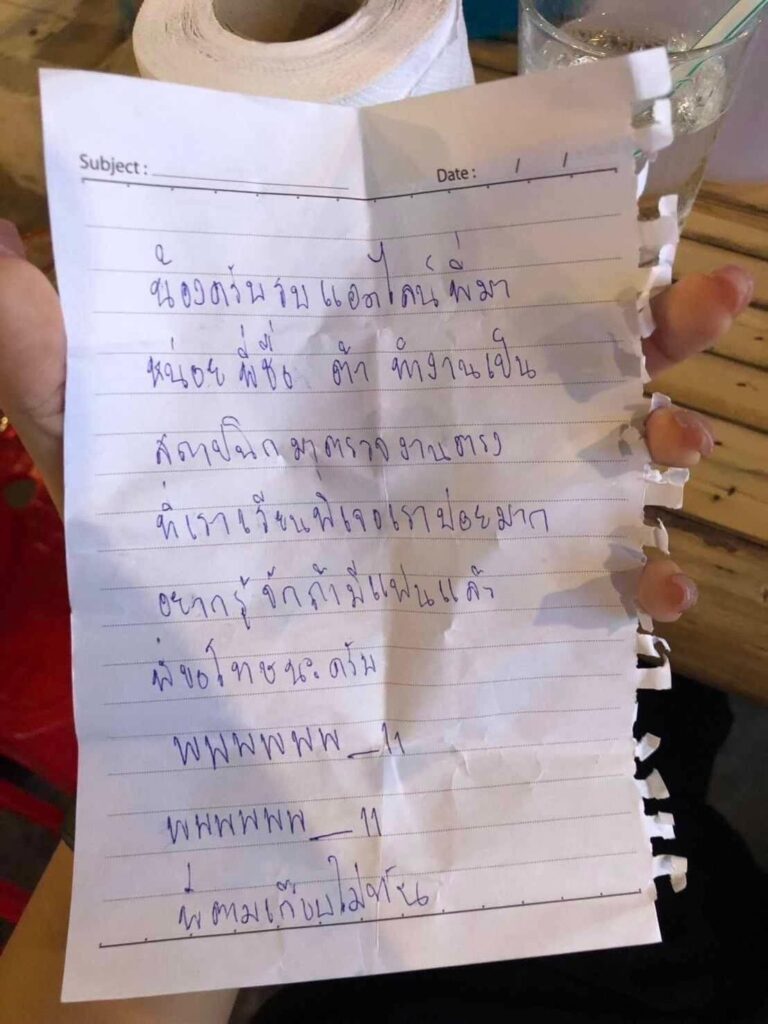 Subject :
Date : / /
น้องครับรบแอดไลน์พี่มา
หน่อยพี่ชื่อ ต้า ทำงานเป็น
สถาปนิกมาตรวจงานตรง
ที่เราเรียนพี่เจอเราบ่อยมาก
อยากรู้จักถ้ามีแฟนแล้ว
พี่ขอโทษนะครับ
พพพพพพ_11
พพพพพพ_11
พี่ตามเกือบไม่ทัน